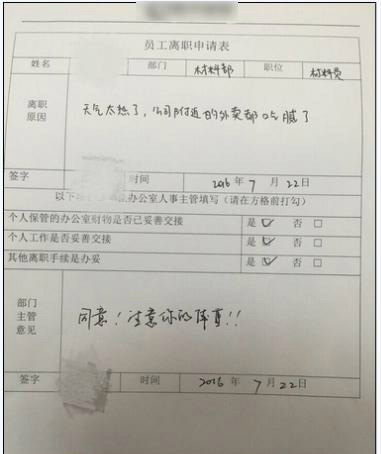 员工离职申请表
姓名 部门 材料部 职位 材料员
离职
原因
天气太热了，公司附近的外卖都吃腻了
签字 时间 2016 年 7 月 22 日
以下 办公室人事主管填写（请在方格前打勾）
个人保管的办公室财物是否已妥善交接 是 ☑ 否 □
个人工作是否妥善交接 是 ☑ 否 □
其他离职手续是办妥 是 ☑ 否 □
部门
主管
意见
同意！注意你的体重！！
签字 时间 2016 年 7 月 22 日